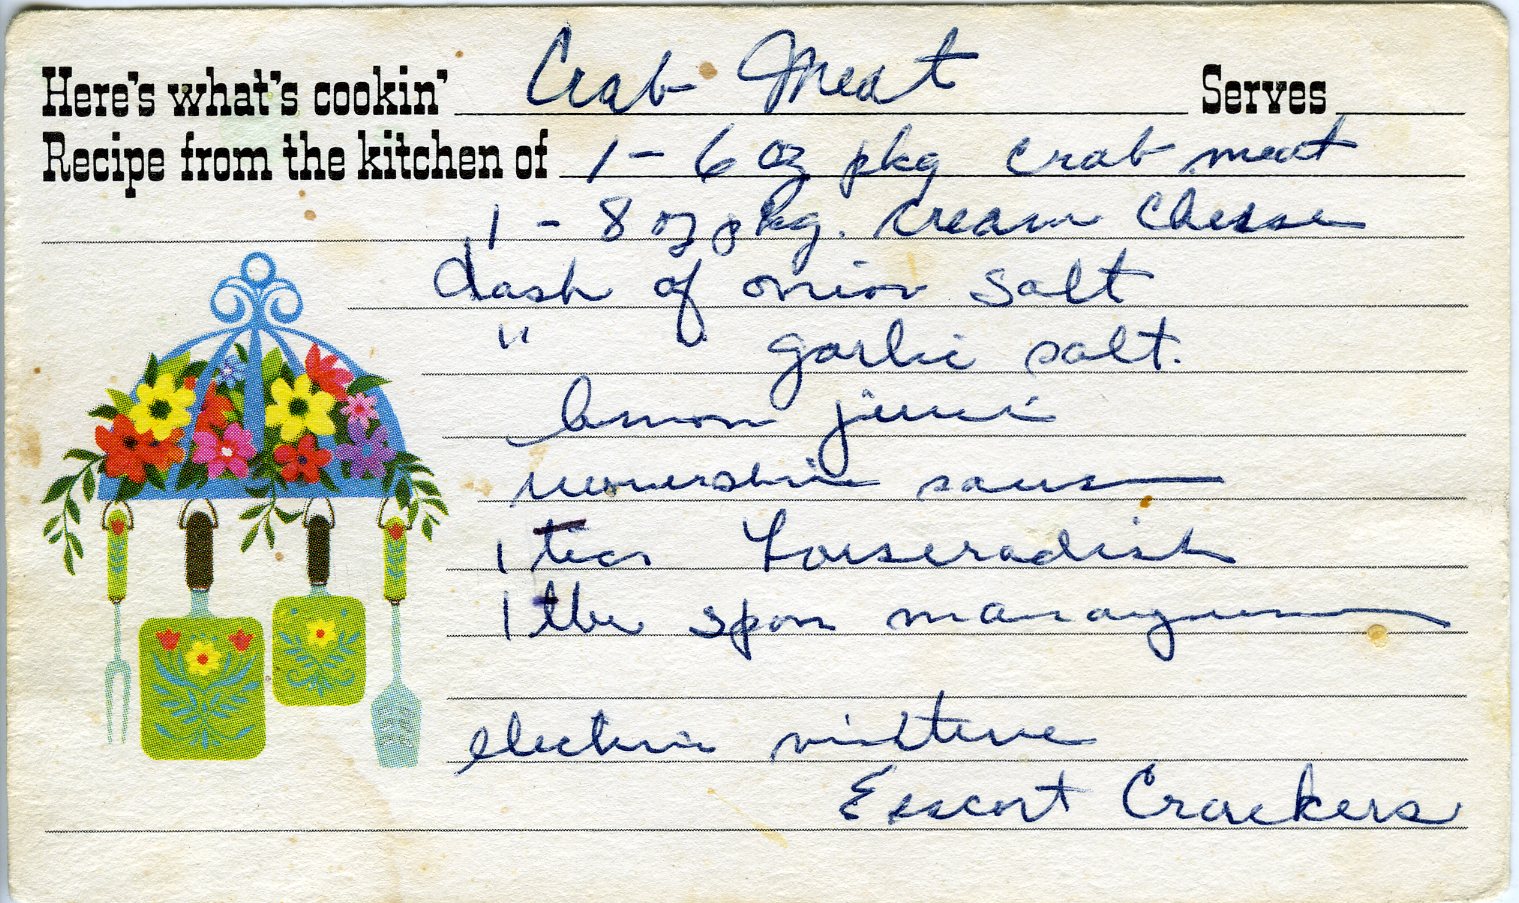 Here's what's cookin' Crab Meat Serves
Recipe from the kitchen of 1 - 6 oz pkg crab meat
1 - 8 oz pkg. cream cheese
dash of onion salt
" garlic salt.
lemon juice
sause
1 teas horseradish
1 tbe spon
electric
Escort Crackers